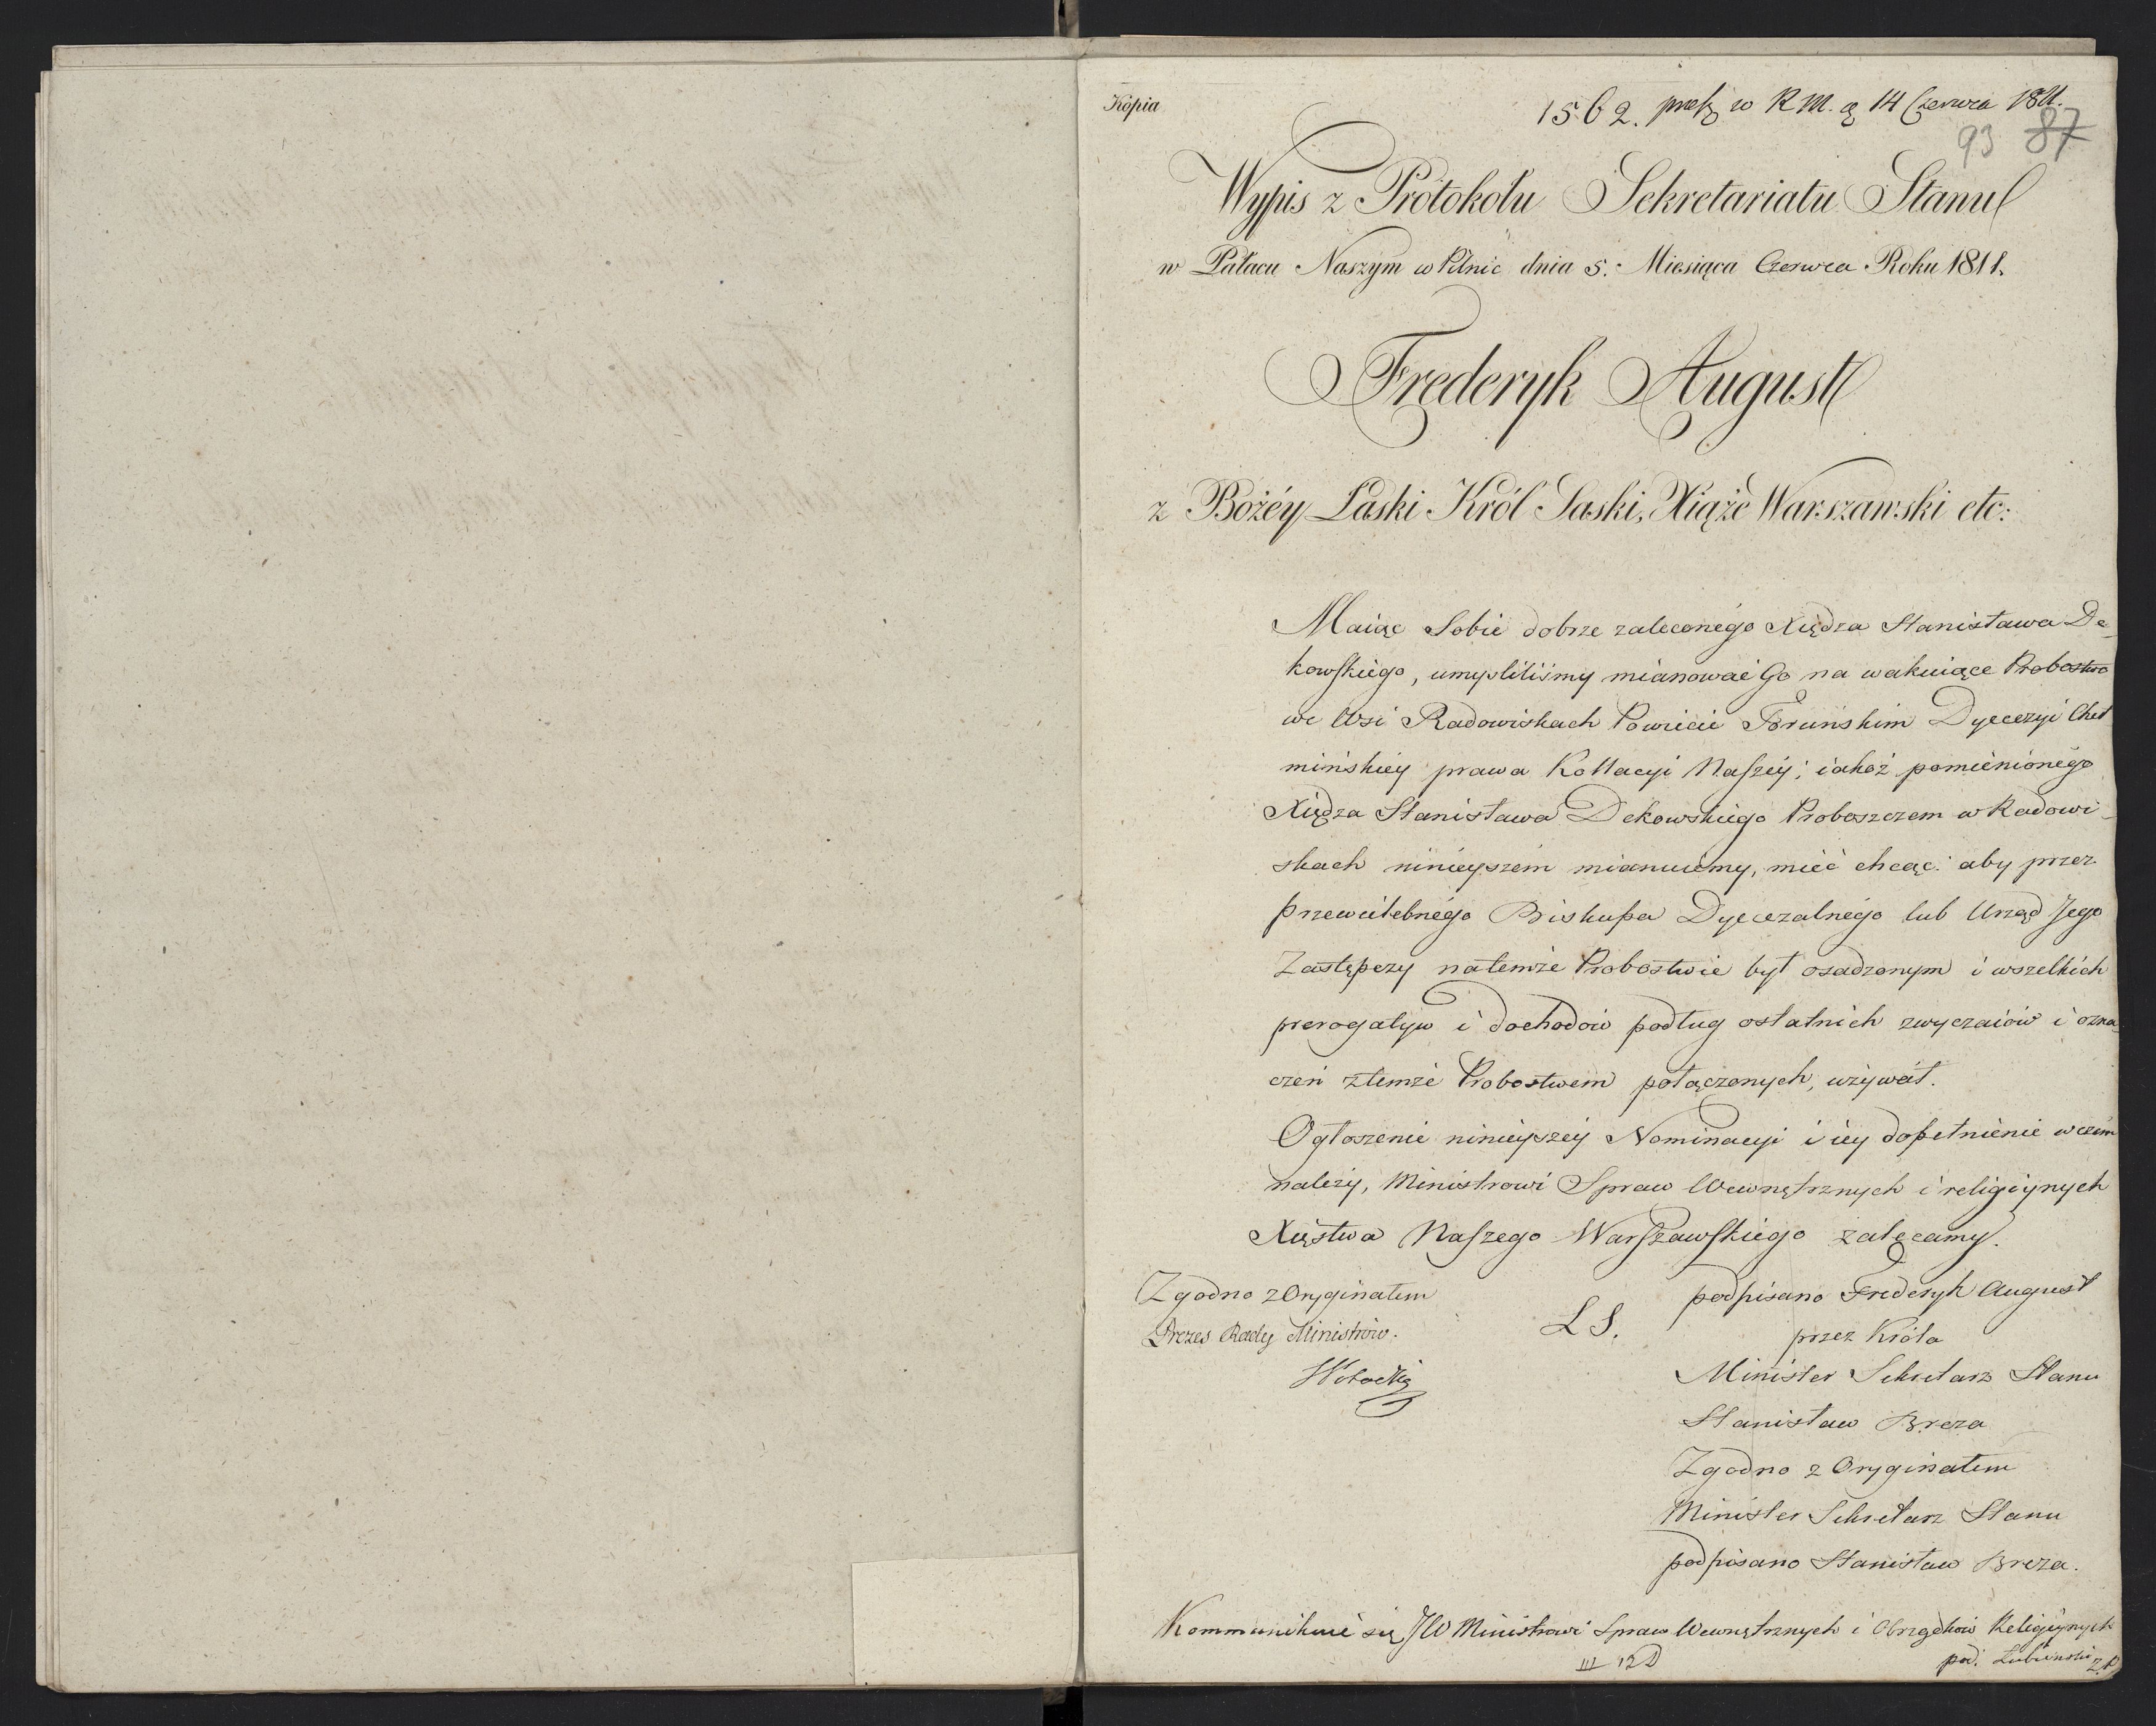 Kopia
1562. pres. w RM. d. 14 Czerwca 1811.
93 87
Wypis z Protokołu Sekretariatu Stanu
w Pałacu Naszym w Pilnic dnia 5. Miesiąca Czerwca Roku 1811.
Frederyk August
z Bożéy Łaski Król Saski, Xiąże Warszawski etc:
Maiąc Sobie dobrze zaleconego Xiędza Stanisława De-
kowskiego, umyśliliśmy mianować Go na wakuiące Probostwo
we Wsi Radowiskach Powiecie Toruńskim Dyecezyi Cheł
mińskiey prawa Kollacyi Naszey; iakoż pomienionego
Xiędza Stanisława Dekowskiego Proboszczem w Radowi-
skach ninieyszem mianuiemy, mieć chcąc: aby przez
przewielebnego Biskupa Dyecezalnego lub Urząd Jego
Zastępczy natemże Probostwie był osadzonym i wszelkich
prerogatyw i dochodów podług ostatnich zwyczaiów i ozna-
czeń ztemże Probostwem połączonych, używał.
Ogłoszenie ninieyszey Nominacyi i iey dopełnienie w czem
należy, Ministrowi Spraw Wewnętrznych i religiynych
Xięstwa Naszego Warszawskiego zalecamy.
Zgodno z Oryginałem
Prezes Rady Ministrów.
L S.
podpisano Frederyk August
przez Króla
Minister Sekretarz Stanu
Stanisław Breza
Zgodno z Oryginałem
Minister Sekretarz Stanu
podpisano Stanisław Breza.
Kommunikuie się JW Ministrowi Spraw Wewnętrznych i Obrządków Religiynych
III 12 D
pod. Łubieński